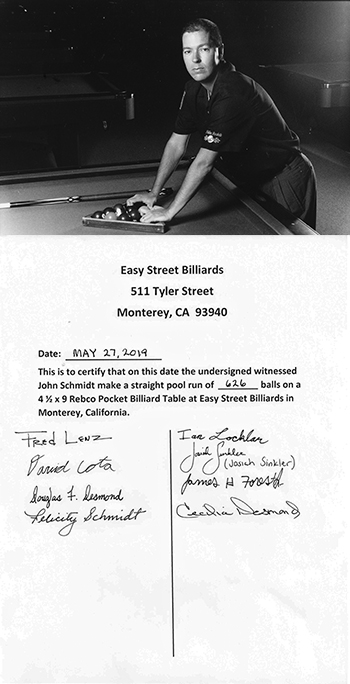 Easy Street Billiards
511 Tyler Street
Monterey, CA 93940
Date: MAY 27, 2019
This is to certify that on this date the undersigned witnessed
John Schmidt make a straight pool run of 626 balls on a
4 ½ x 9 Rebco Pocket Billiard Table at Easy Street Billiards in
Monterey, California.
Fred Lenz
David Cota
Douglas F. Desmond
Felicity Schmidt
Ian Lochlar
Josiah Sinkler
(Josiah Sinkler)
James H Foresth
Cecilia Desmond